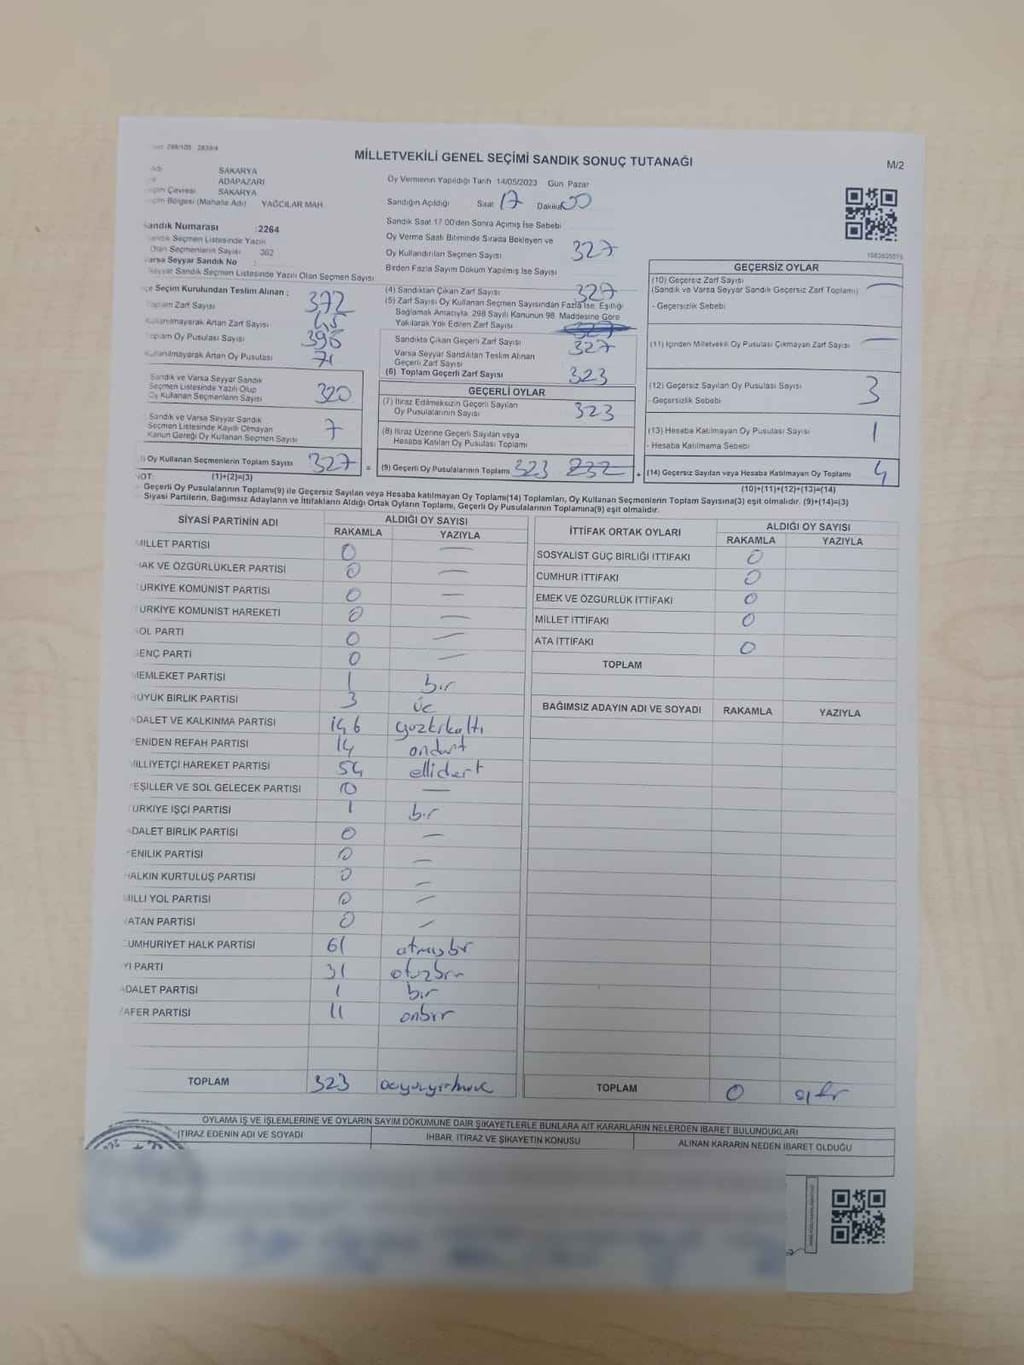 MİLLETVEKİLİ GENEL SEÇİMİ SANDIK SONUÇ TUTANAĞI
M/2
SAKARYA
ADAPAZARI
SAKARYA
Bölgesi (Mahalle Adı) YAĞCILAR MAH.
Sandık Numarası :2264
Sandık Seçmen Listesinde Yazılı
Olan Seçmenlerin Sayısı 362
Varsa Seyyar Sandık No :
Seyyar Sandık Seçmen Listesinde Yazılı Olan Seçmen Sayısı
Oy Vermenin Yapıldığı Tarih 14/05/2023 Gün Pazar
Sandığın Açıldığı Saat 17 Dakika 00
Sandık Saat 17.00'den Sonra Açılmış İse Sebebi
Oy Verme Saati Bitiminde Sırada Bekleyen ve
Oy Kullandırılan Seçmen Sayısı 327
Birden Fazla Sayım Döküm Yapılmış İse Sayısı
İlçe Seçim Kurulundan Teslim Alınan ;
Toplam Zarf Sayısı 372
Kullanılmayarak Artan Zarf Sayısı 45
Toplam Oy Pusulası Sayısı 398
Kullanılmayarak Artan Oy Pusulası 71
Sandık ve Varsa Seyyar Sandık
Seçmen Listesinde Yazılı Olup
Oy Kullanan Seçmenlerin Sayısı 320
Sandık ve Varsa Seyyar Sandık
Seçmen Listesinde Kayıtlı Olmayan
Kanun Gereği Oy Kullanan Seçmen Sayısı 7
Oy Kullanan Seçmenlerin Toplam Sayısı 327
(1)+(2)=(3)
(4) Sandıktan Çıkan Zarf Sayısı 327
(5) Zarf Sayısı Oy Kullanan Seçmen Sayısından Fazla İse, Eşitliği
Sağlamak Amacıyla, 298 Sayılı Kanunun 98. Maddesine Göre
Yakılarak Yok Edilen Zarf Sayısı 327
Sandıkta Çıkan Geçerli Zarf Sayısı 327
Varsa Seyyar Sandıktan Teslim Alınan
Geçerli Zarf Sayısı
(6) Toplam Geçerli Zarf Sayısı 323
GEÇERLİ OYLAR
(7) İtiraz Edilmeksizin Geçerli Sayılan
Oy Pusulalarının Sayısı 323
(8) İtiraz Üzerine Geçerli Sayılan veya
Hesaba Katılan Oy Pusulası Toplamı
(9) Geçerli Oy Pusulalarının Toplamı 323 232
GEÇERSİZ OYLAR
(10) Geçersiz Zarf Sayısı
(Sandık ve Varsa Seyyar Sandık Geçersiz Zarf Toplamı) —
- Geçersizlik Sebebi
(11) İçinden Milletvekili Oy Pusulası Çıkmayan Zarf Sayısı —
(12) Geçersiz Sayılan Oy Pusulası Sayısı 3
- Geçersizlik Sebebi
(13) Hesaba Katılmayan Oy Pusulası Sayısı 1
- Hesaba Katılmama Sebebi
(14) Geçersiz Sayılan veya Hesaba Katılmayan Oy Toplamı 4
(10)+(11)+(12)+(13)=(14)
NOT:
Geçerli Oy Pusulalarının Toplamı(9) ile Geçersiz Sayılan veya Hesaba katılmayan Oy Toplamı(14) Toplamları, Oy Kullanan Seçmenlerin Toplam Sayısına(3) eşit olmalıdır. (9)+(14)=(3)
Siyasi Partilerin, Bağımsız Adayların ve İttifakların Aldığı Ortak Oyların Toplamı, Geçerli Oy Pusulalarının Toplamına(9) eşit olmalıdır.
SİYASİ PARTİNİN ADI ALDIĞI OY SAYISI
RAKAMLA YAZIYLA
MİLLET PARTİSİ 0 —
HAK VE ÖZGÜRLÜKLER PARTİSİ 0 —
TÜRKİYE KOMÜNİST PARTİSİ 0 —
TÜRKİYE KOMÜNİST HAREKETİ 0 —
SOL PARTİ 0 —
GENÇ PARTİ 0 —
MEMLEKET PARTİSİ 1 bir
BÜYÜK BİRLİK PARTİSİ 3 üç
ADALET VE KALKINMA PARTİSİ 146 yüzkırkaltı
YENİDEN REFAH PARTİSİ 14 ondört
MİLLİYETÇİ HAREKET PARTİSİ 54 ellidört
YEŞİLLER VE SOL GELECEK PARTİSİ 0 —
TÜRKİYE İŞÇİ PARTİSİ 1 bir
ADALET BİRLİK PARTİSİ 0 —
YENİLİK PARTİSİ 0 —
HALKIN KURTULUŞ PARTİSİ 0 —
MİLLİ YOL PARTİSİ 0 —
VATAN PARTİSİ 0 —
CUMHURİYET HALK PARTİSİ 61 atmışbir
İYİ PARTİ 31 otuzbir
ADALET PARTİSİ 1 bir
ZAFER PARTİSİ 11 onbir
TOPLAM 323
İTTİFAK ORTAK OYLARI ALDIĞI OY SAYISI
RAKAMLA YAZIYLA
SOSYALİST GÜÇ BİRLİĞİ İTTİFAKI 0
CUMHUR İTTİFAKI 0
EMEK VE ÖZGÜRLÜK İTTİFAKI 0
MİLLET İTTİFAKI 0
ATA İTTİFAKI 0
TOPLAM
BAĞIMSIZ ADAYIN ADI VE SOYADI RAKAMLA YAZIYLA
TOPLAM 0 sıfır
OYLAMA İŞ VE İŞLEMLERİNE VE OYLARIN SAYIM DÖKÜMÜNE DAİR ŞİKAYETLERLE BUNLARA AİT KARARLARIN NELERDEN İBARET BULUNDUKLARI
İTİRAZ EDENİN ADI VE SOYADI İHBAR, İTİRAZ VE ŞİKAYETİN KONUSU ALINAN KARARIN NEDEN İBARET OLDUĞU